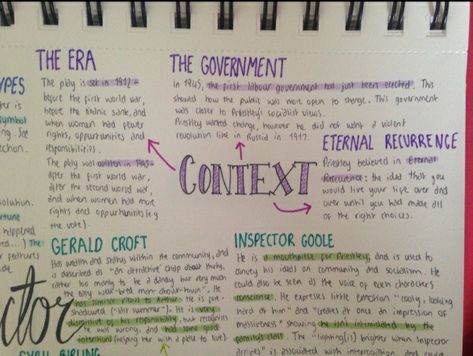 THE ERA
The play is set in 1912 -
before the first world war,
before the titanic sank, and
when women had fewer
rights, opportunities and
responsibilities.
The play was written in 1945 -
after the first world war,
after the second world war,
and when women had more
rights and opportunities (e.g
the vote).
THE GOVERNMENT
In 1945, the first labour government had just been elected. This
should how the public was more open to change. This government
was closer to Priestley's socialist views.
Priestley wanted change, however he did not want a violent
revolution like in Russia in 1917.
CONTEXT
ETERNAL RECURRENCE
Priestley believed in Eternal
Recurrence: the idea that you
would live your life over and
over until you had made all
of the right choices.
YPES
symbol
GERALD CROFT
Has wealth and status within the community, and
is described as "an attractive chap about thirty,
rather too manly to be a dandy but very much
the easy well-bred man-about-town". He
has similar ideals to Arthur. He is
of his responsibility, but recognises
he was wrong, and had some good
intentions
INSPECTOR GOOLE
He is a mouthpiece for Priestley, and is used to
convey his ideas on community and socialism. He
could also be seen as the voice of each characters
conscience. He expresses little emotion "coolly, looking
hard at him" and "creates at once an impression of
massiveness" showing he isnt intimidated by the
The "lighting [is] brighter when Inspector
arrives" is associated with interrogation, and
ctor
BIRLING